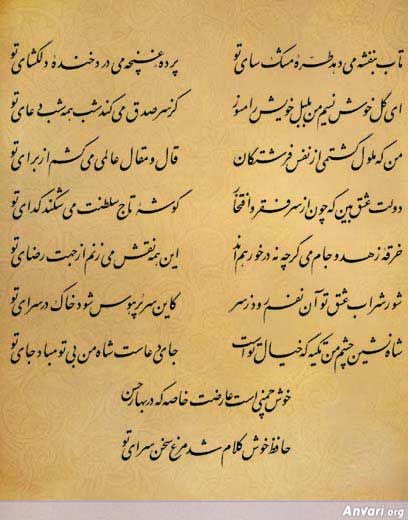 تاب بنفشه می دهد طرهٔ مشک سای تو پردهٔ غنچه می درد خندهٔ دلگشای تو
ای گل خوش نسیم من بلبل خویش را مسوز کز سر صدق می کند شب همه شب دعای تو
من که ملول گشتمی از نفس فرشتگان قال و مقال عالمی می کشم از برای تو
دولت عشق بین که چون از سر فقر و افتخار گوشهٔ تاج سلطنت می شکند گدای تو
خرقه زهد و جام می گرچه نه در خور همند این همه نقش می زنم از جهت رضای تو
شور شراب عشق تو آن نفسم رود ز سر کاین سر پر هوس شود خاک در سرای تو
شاه نشین چشم من تکیه گه خیال تو است جای دعاست شاه من بی تو مباد جای تو
خوش چمنی است عارضت خاصه که در بهار حسن
حافظ خوش کلام شد مرغ سخن سرای تو
Anvari.org